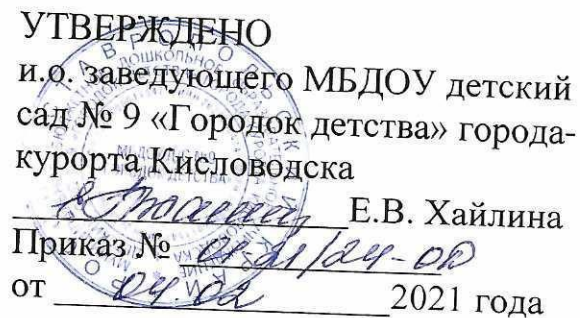 УТВЕРЖДЕНО
и.о. заведующего МБДОУ детский
сад № 9 «Городок детства» города-
курорта Кисловодска
Е.В. Хайлина
Приказ № 01-21/24-ОД
от 04.02 2021 года